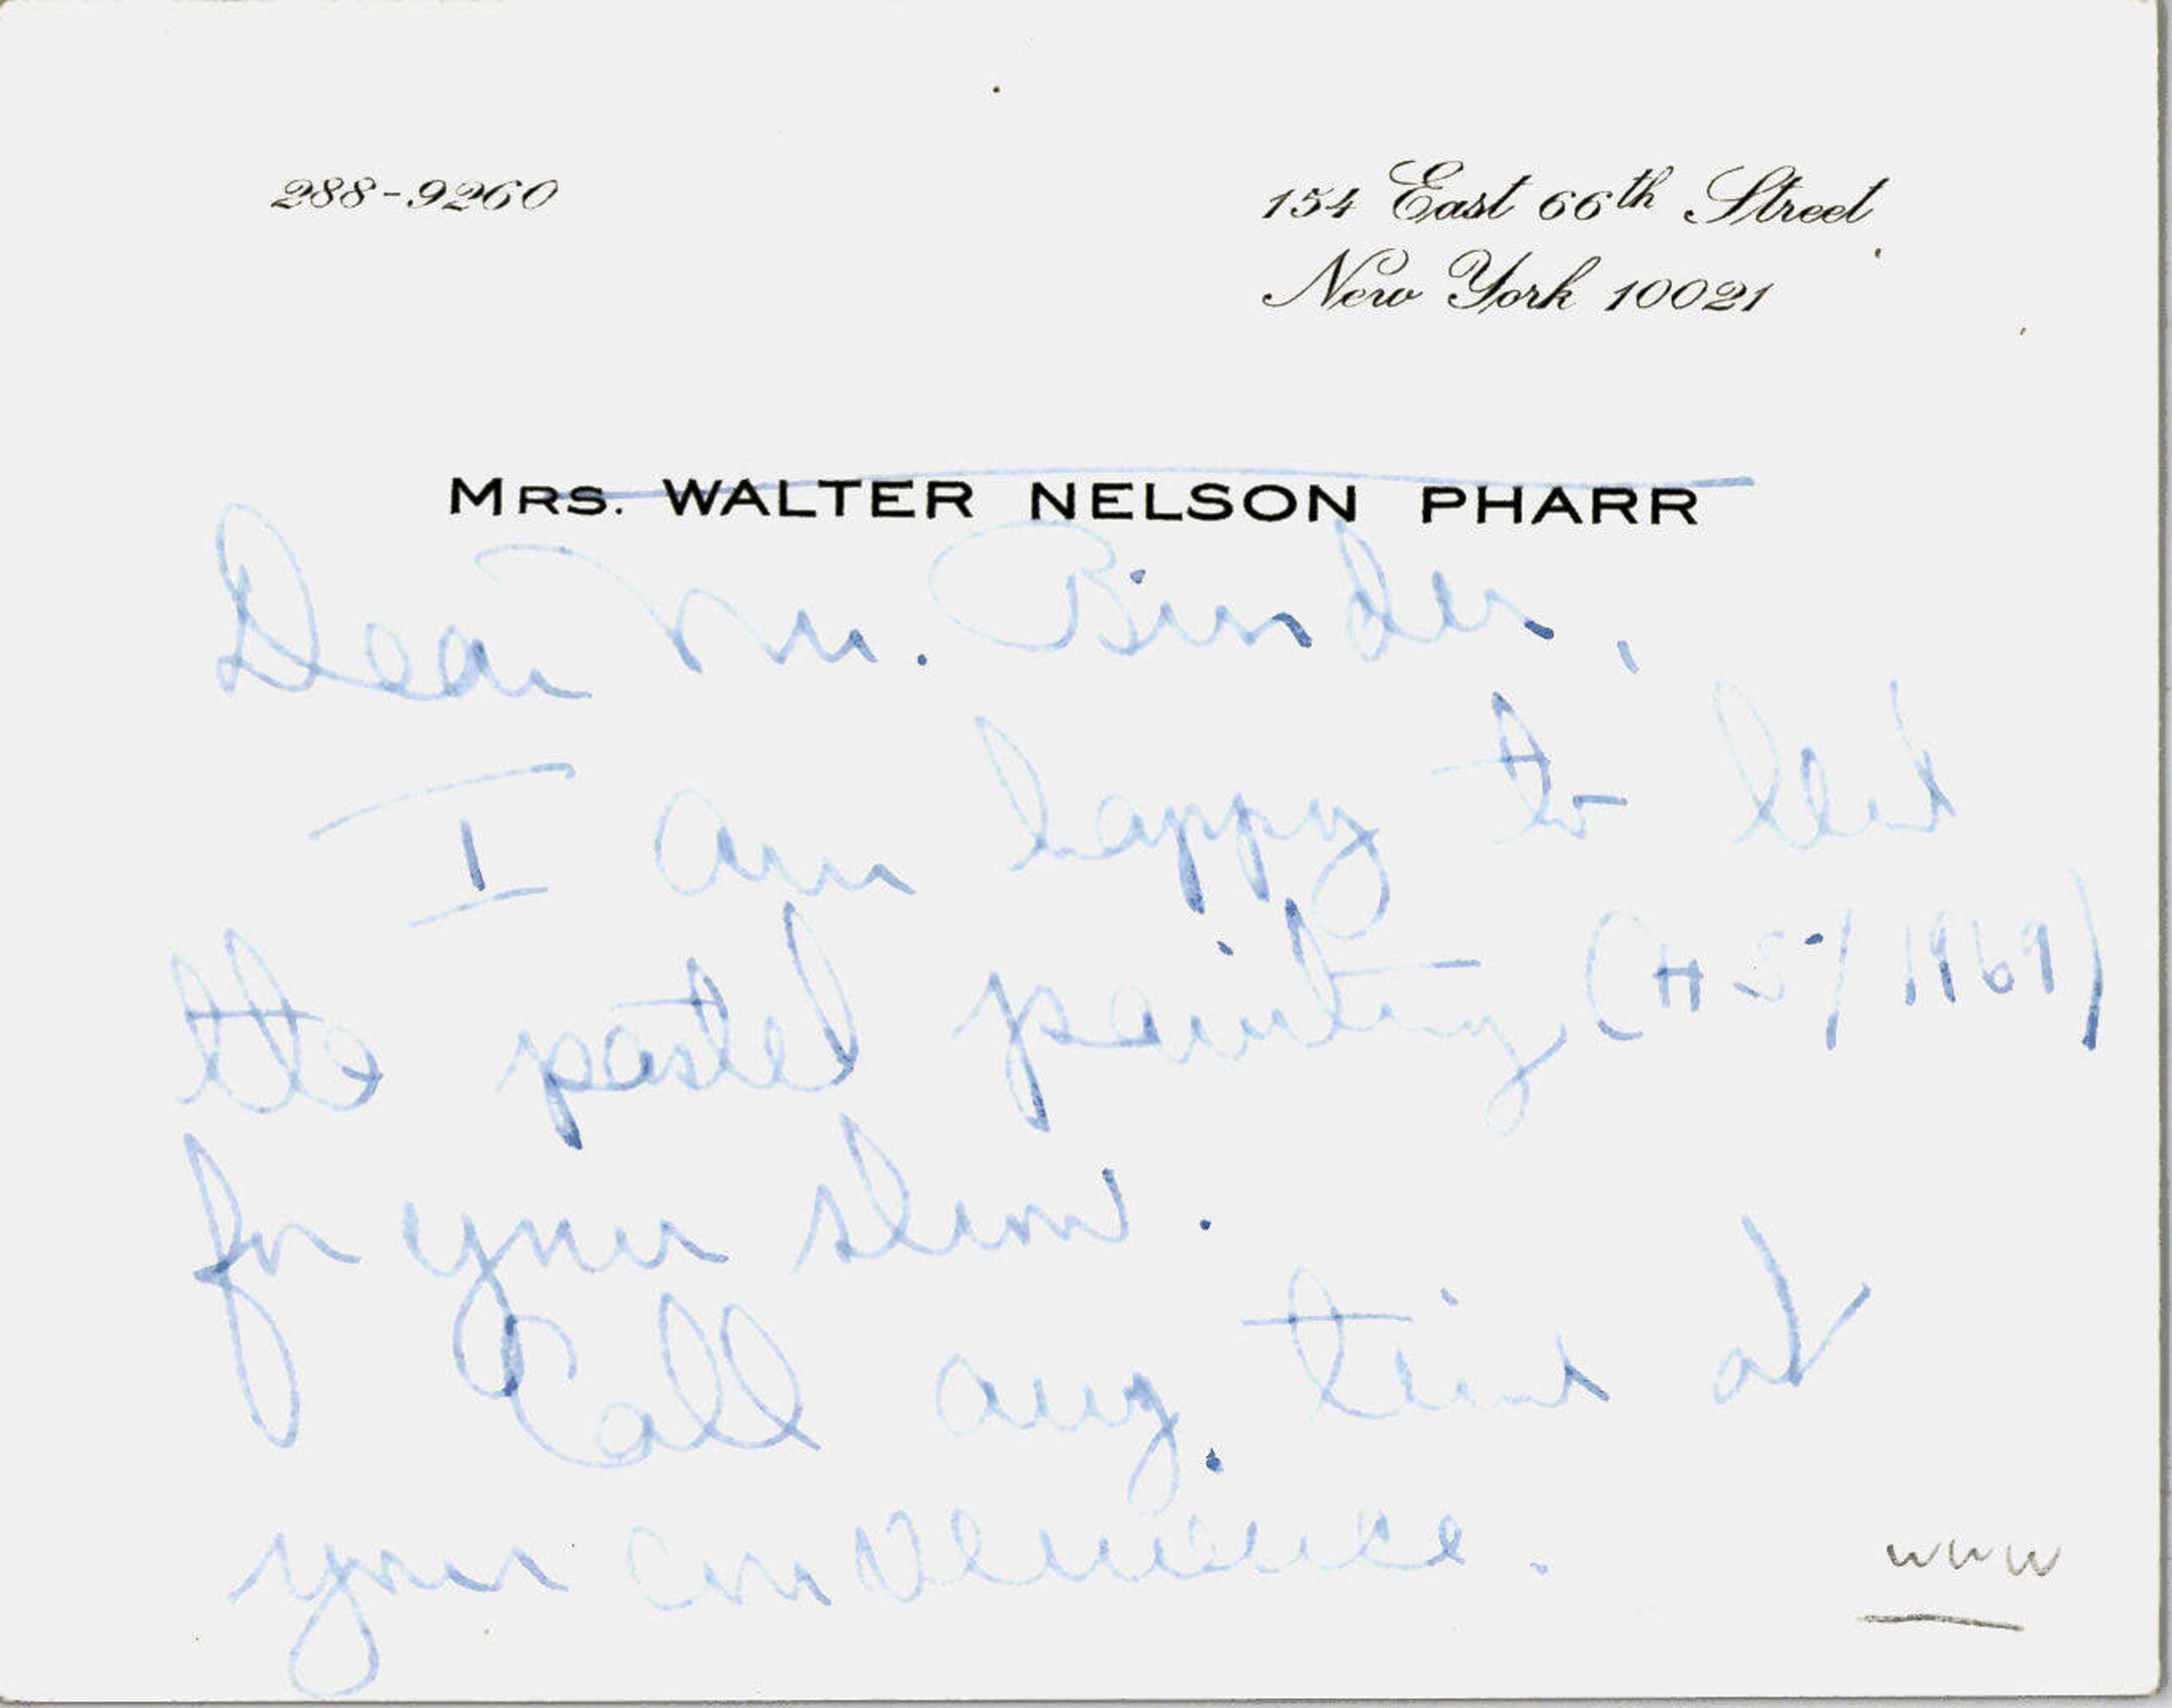 288-9260
154 East 66th Street
New York 10021
MRS. WALTER NELSON PHARR
Dear Mr. Binder,
I am happy to lend
the pastel painting (H57, 1969)
for your show.
Call any time at
your convenience.